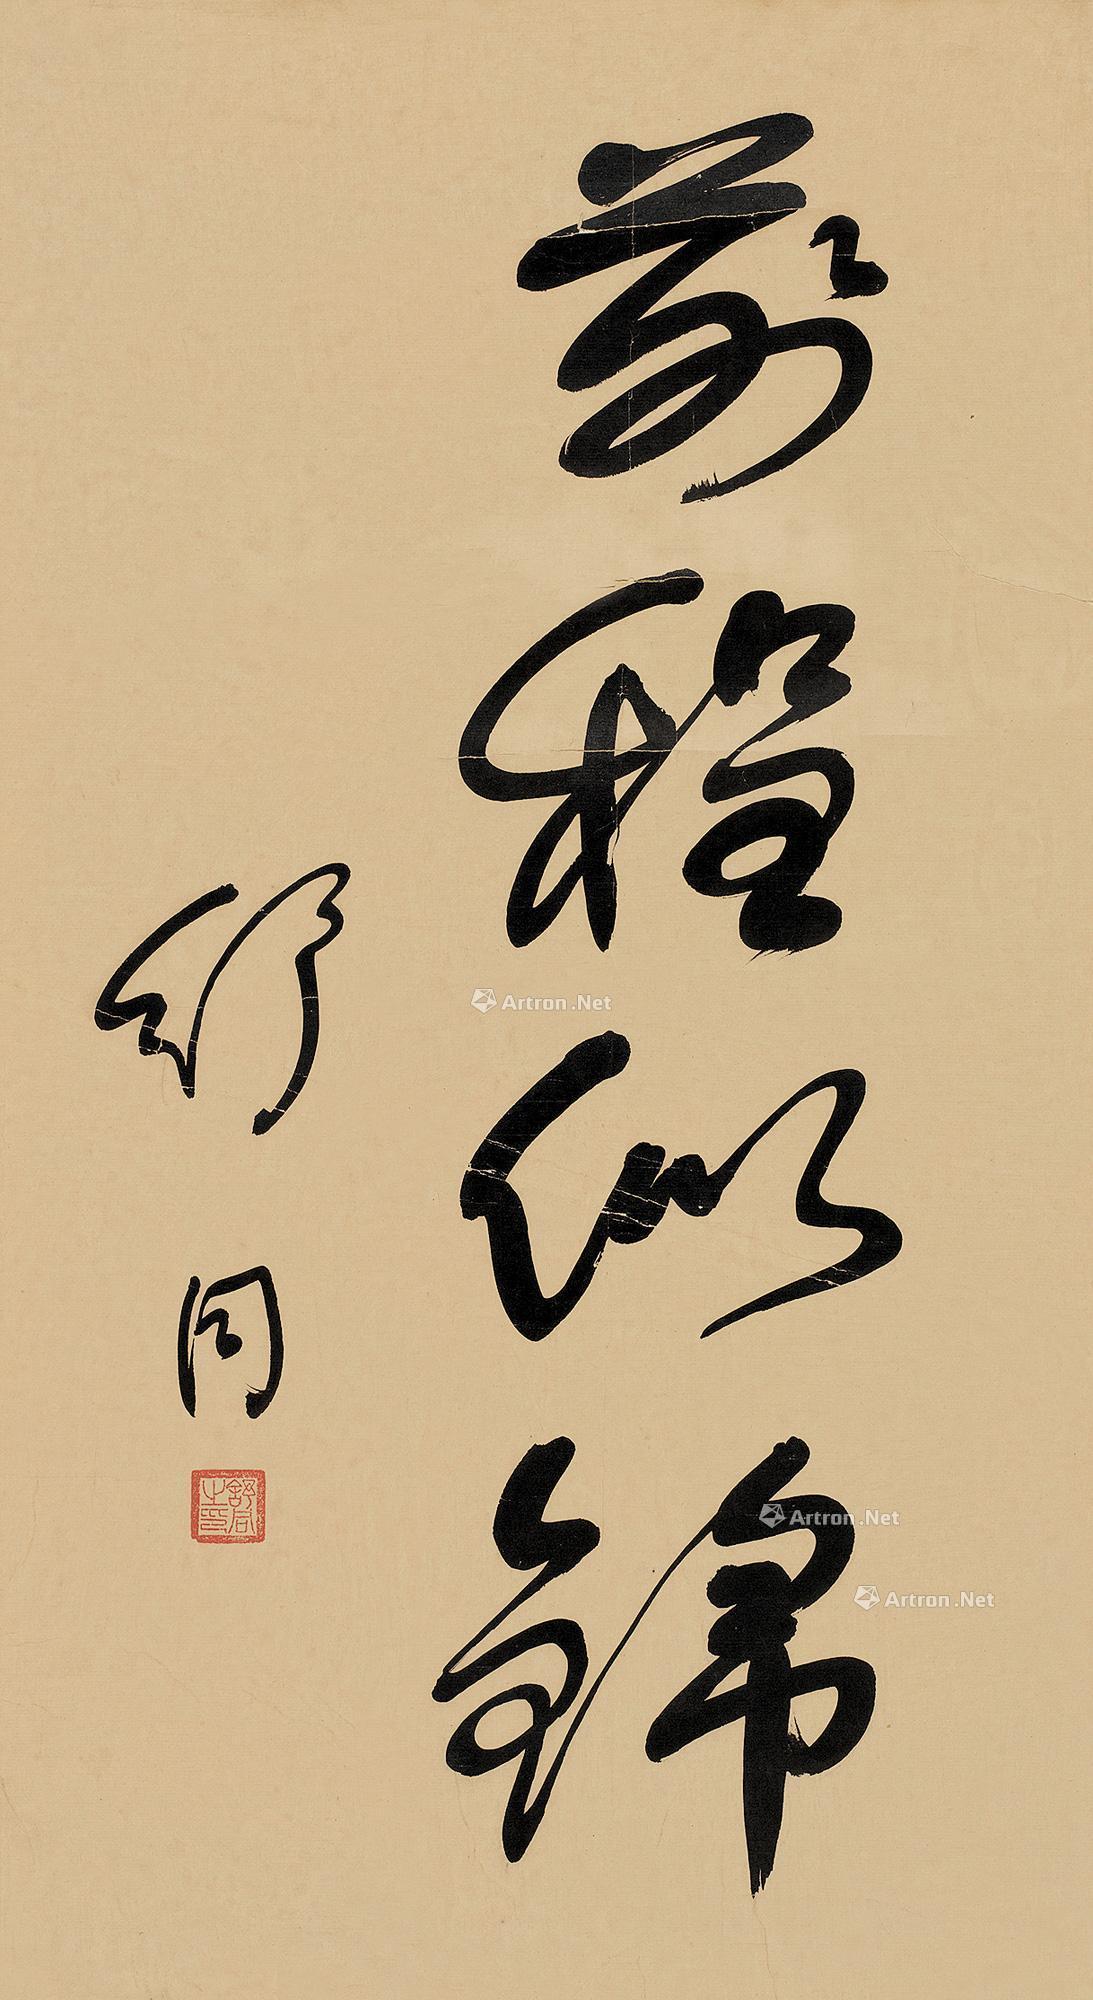 前程似锦
舒同
舒同之印
Artron.Net
Artron.Net
Artron.Net